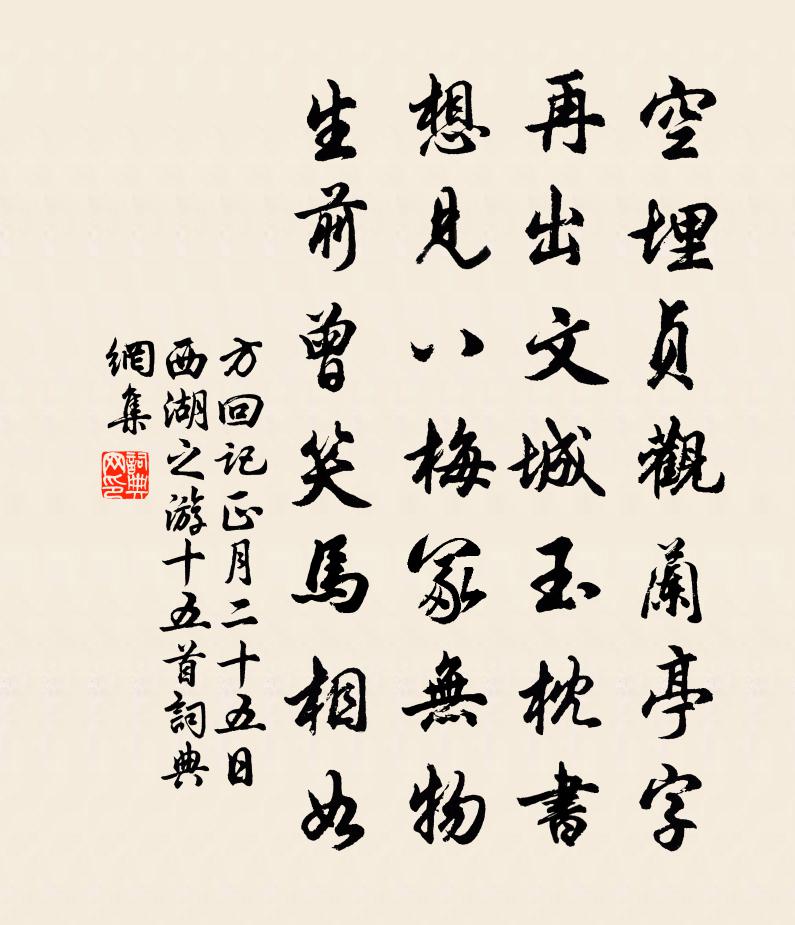 空埋貞觀蘭亭字
再出文城玉枕書
想見八梅冢無物
生前曾笑馬相如
方回記正月二十五日
西湖之游十五首詞典
網集
詞典
网印